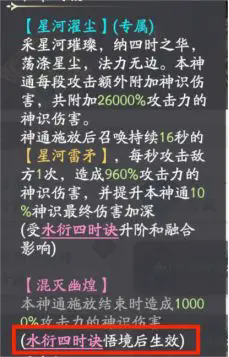 【星河濯尘】(专属)
采星河璀璨，纳四时之华，
荡涤星尘，法力无边。本神
通每段攻击额外附加神识伤
害，共附加26000%攻击力的
神识伤害。
神通施放后召唤持续16秒的
【星河雷矛】，每秒攻击敌
方1次，造成960%攻击力的
神识伤害，并提升本神通10
%神识最终伤害加深
(受水衍四时诀升阶和融合
影响)
【混灭幽煌】
本神通施放结束时造成1000
0%攻击力的神识伤害
(水衍四时诀悟境后生效)